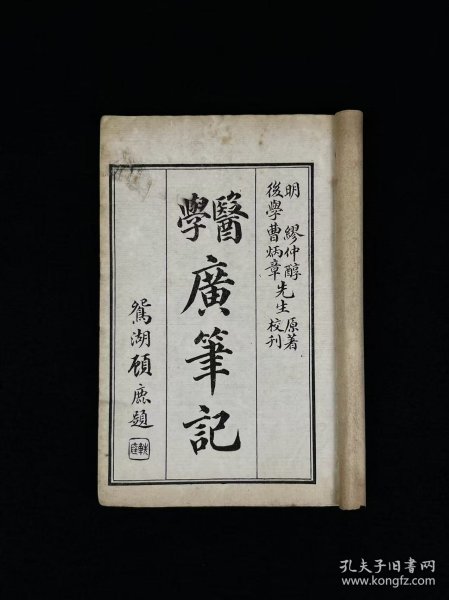 明 繆仲醇 原著
後學曹炳章先生校刊
醫學廣筆記
鴛湖顧鹿題
孔夫子旧书网
www.kongfz.com